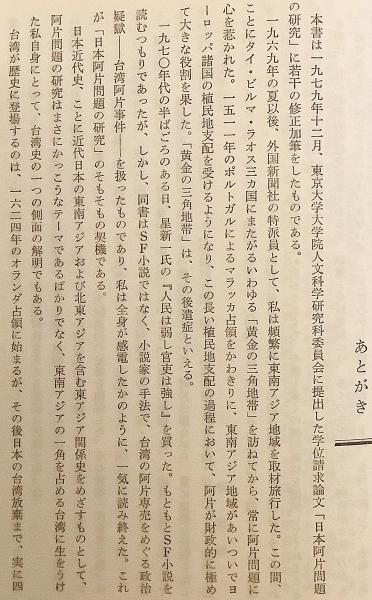 あとがき
本書は一九七九年十二月、東京大学大学院人文科学研究科委員会に提出した学位請求論文「日本阿片問題
の研究」に若干の修正加筆をしたものである。
一九六九年の夏以後、外国新聞社の特派員として、私は頻繁に東南アジア地域を取材旅行した。この間、
ことにタイ・ビルマ・ラオス三カ国にまたがるいわゆる「黄金の三角地帯」を訪ねてから、常に阿片問題に
心を惹かれた。一五一一年のポルトガルによるマラッカ占領をかわきりに、東南アジア地域があいついでヨ
ーロッパ諸国の植民地支配を受けるようになり、この長い植民地支配の過程において、阿片が財政的に極め
て大きな役割を果した。「黄金の三角地帯」は、その後遺症といえる。
一九七〇年代の半ばごろのある日、星新一氏の『人民は弱し官吏は強し』を買った。もともとSF小説を
読むつもりであったが、しかし、同書はSF小説ではなく、小説家の手法で、台湾の阿片専売をめぐる政治
疑獄――台湾阿片事件――を扱ったものであり、私は全身が感電したかのように、一気に読み終えた。これ
が「日本阿片問題の研究」のそもそもの契機である。
日本近代史、ことに近代日本の東南アジアおよび北東アジアを含む東アジア関係史をめざすものとして、
阿片問題の研究はまさにかっこうなテーマであるばかりでなく、東南アジアの一角を占める台湾に生をうけ
た私自身にとって、台湾史の一つの側面の解明でもある。
台湾が歴史に登場するのは、一六二四年のオランダ占領に始まるが、その後日本の台湾放棄まで、実に四